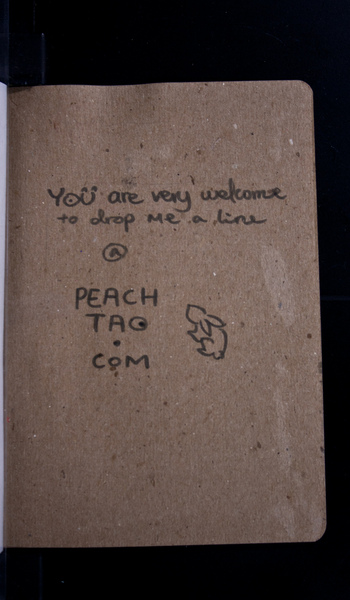 YOÜ are very welcome
to drop me a line
@
PEACH
TAO
.
COM